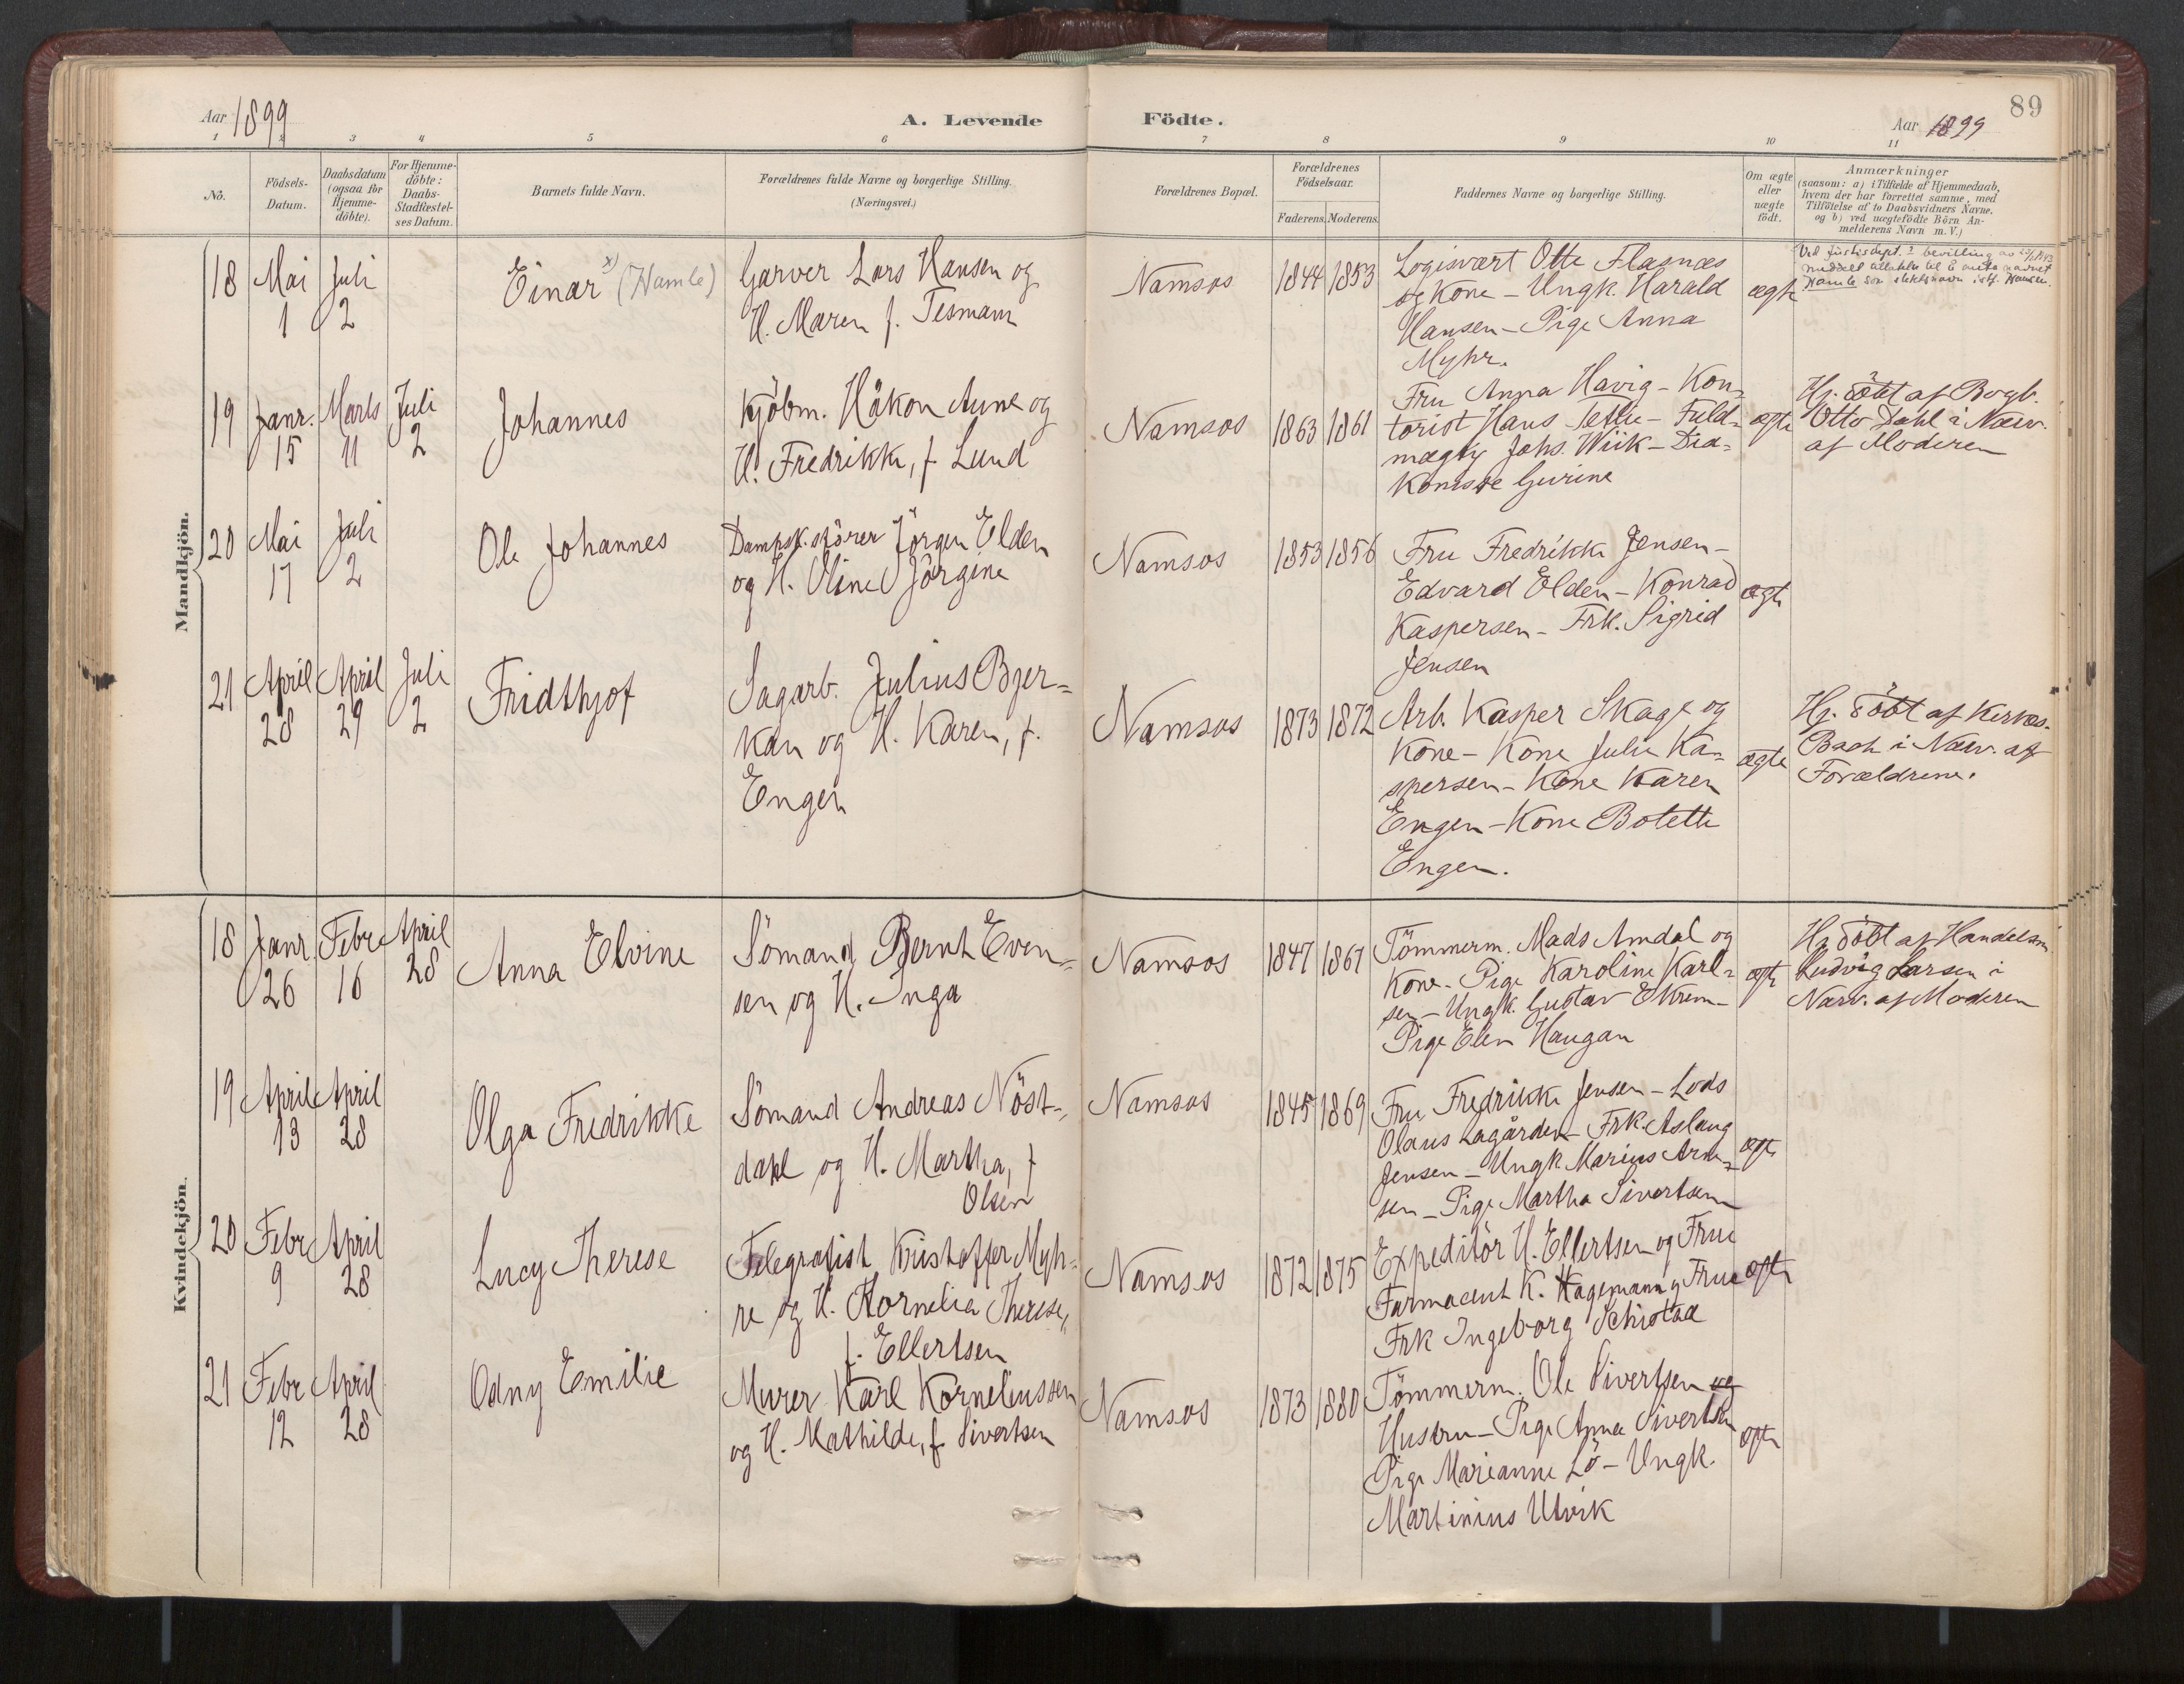 Aar 1899
A. Levende
Födte.
Aar 1899
89
1 2 3 4 5 6 7 8 9 10 11
No.
Födsels-
Datum.
Daabsdatum
(ogsaa for
Hjemme-
döbte).
For Hjemme-
döbte:
Daabs-
Stadfæstel-
ses Datum.
Barnets fulde Navn.
Forældrenes fulde Navne og borgerlige Stilling.
(Næringsvei.)
Forældrenes Bopæl.
Forældrenes
Födselsaar.
Faderens. Moderens.
Faddernes Navne og borgerlige Stilling.
Om ægte
eller
uægte
født.
Anmærkninger
(saasom: a) i Tilfælde af Hjemmedaab,
hvem der har forrettet samme, med
Tilföielse af to Daabsvidners Navne.
og b) ved uægtefödte Börn An-
melderens Navn m. V.)
Mandkjön.
18
Mai
1
Juli
2
Einar x) (Hamle)
Garver Lars Hansen og
H. Maren f. Tesmann
Namsos
1844
1853
Logisvært Otte Flasnæs
og Kone - Ungk. Harald
Hansen - Pige Anna
Myhr.
ægte
Ved Justisdept.s bevilling av
meddelt tillatelse til å anta navnet
Hamle som slektsnavn istf. Hansen.
19
Janr.
15
Marts
11
Juli
2
Johannes
Kjöbm. Håkon Aune og
H. Fredrikke, f. Lund
Namsos
1863
1861
Fru Anna Havig - Kon-
torist Hans Sellie - Fuld-
mægtig Johs. Wiik - Dia-
konisse Gurine
ægte
Hj. döbt af Bogb.
Otto Dahl i Nærv.
af Moderen
20
Mai
17
Juli
2
Ole Johannes
Dampsk.förer Jörgen Elden
og H. Oline Jörgine
Namsos
1853
1856
Fru Fredrikke Jensen -
Edvard Elden - Konrad
Kaspersen - Frk. Sigrid
Jensen
ægte
21
April
28
April
29
Juli
2
Fridthjof
Sagarb. Julius Bjer-
kan og H. Karen, f.
Engen
Namsos
1873
1872
Arb. Kasper Skage og
Kone - Kone Julie Ka-
spersen - Kone Karen
Engen - Kone Botette
Engen.
ægte
Hj. döbt af
Bach i Nærv. af
Forældrene.
Kvindekjön.
18
Janr
26
Febr
16
April
28
Anna Elvine
Sömand Bernt Even-
sen og H. Inga
Namsos
1847
1867
Tömmerm. Mads Amdal og
Kone - Pige Karoline Karl-
sen - Ungk. Gustav Ekrem -
Pige Elen Haugan
ægte
Hj. döbt af Handelsm.
Ludvig Larsen i
Nærv. af Moderen
19
April
13
April
28
Olga Fredrikke
Sömand Andreas Nöst-
dahl og H. Martha, f
Olsen
Namsos
1845
1869
Fru Fredrikke Jensen - Lods
Olaus Lagården - Frk. Aslaug
Jensen - Ungk Marius Arn-
sen - Pige Martha Sivertsen
ægte
20
Febr
9
April
28
Lucy Therese
Telegrafist Kristoffer Myh-
re og H. Kornelia Therese,
f. Ellertsen
Namsos
1872
1875
Expeditör H. Ellertsen og Frue
Farmaceut K. Hagemann og Frue
Frk Ingeborg Schistad
ægte
21
Febr
12
April
28
Odny Emilie
Murer Karl Korneliussen
og H. Mathilde, f. Sivertsen
Namsos
1873
1880
Tömmerm. Ole Sivertsen og
Hustru - Pige Anna Sivertsen
Pige Marianne Lö - Ungk.
Martinius Utvik
ægte